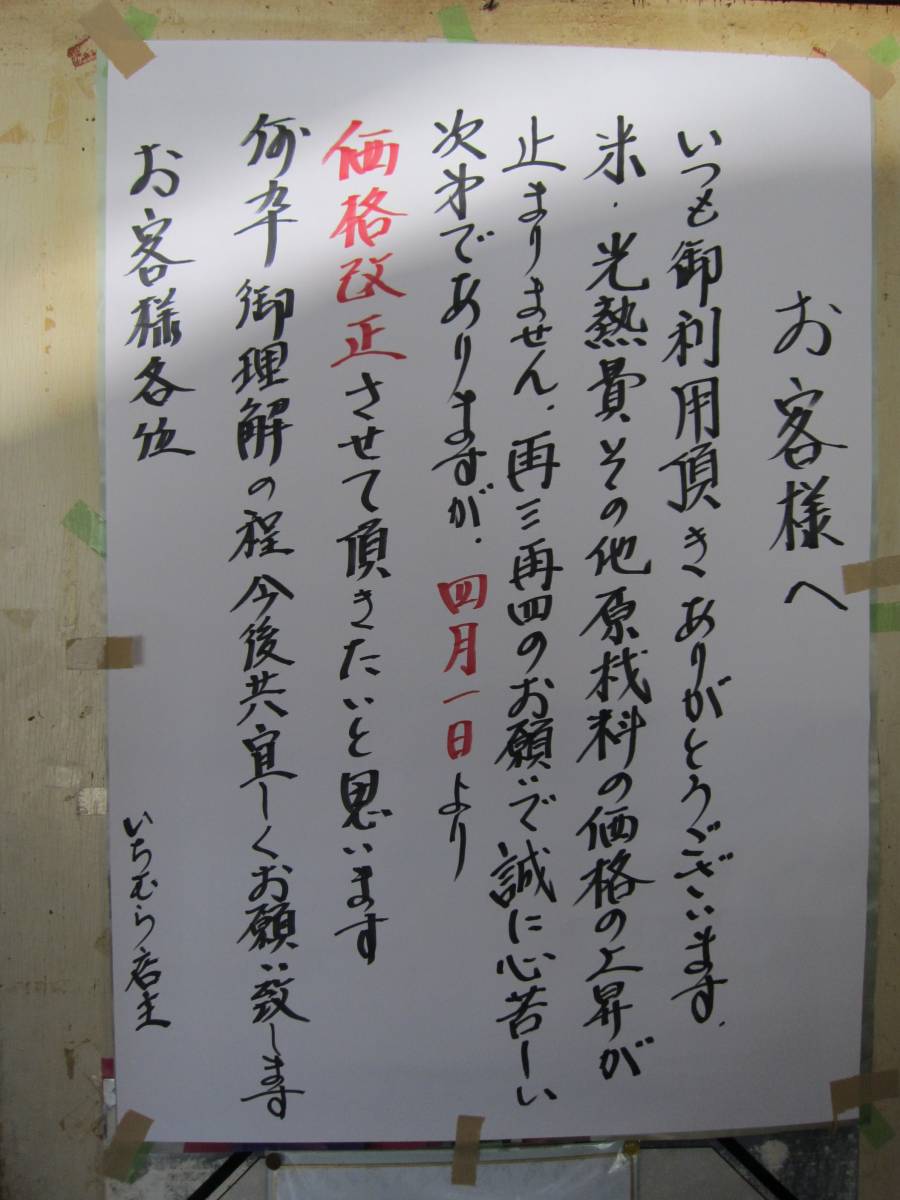 お客様へ
いつも御利用頂きありがとうございます.
米・光熱費その他原材料の価格の上昇が
止まりません.再三再四のお願いで誠に心苦しい
次第でありますが.四月一日より
価格改正させて頂きたいと思います
何卒御理解の程今後共宜しくお願い致します
お客様各位
いちむら店主